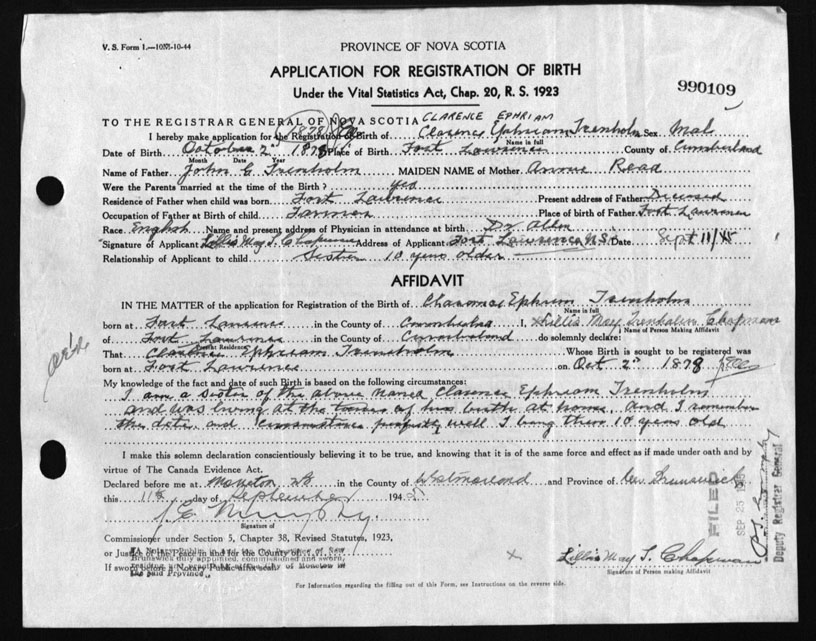 V. S. Form 1.—10M-10-44
PROVINCE OF NOVA SCOTIA
APPLICATION FOR REGISTRATION OF BIRTH
Under the Vital Statistics Act, Chap. 20, R. S. 1923
990109
TO THE REGISTRAR GENERAL OF NOVA SCOTIA CLARENCE EPHRIAM
I hereby make application for the Registration of Birth of Clarence Ephriam Trenholm Sex Male
1878
Name in full
Date of Birth October 2nd 1878 Place of Birth Fort Lawrence County of Cumberland
Month Date Year
Name of Father John Trenholm MAIDEN NAME of Mother Annie Read
Were the Parents married at the time of the Birth? yes
Residence of Father when child was born Fort Lawrence Present address of Father Deceased
Occupation of Father at Birth of child Farmer Place of birth of Father Fort Lawrence
Race English Name and present address of Physician in attendance at birth Dr Allen
Signature of Applicant Lillis May T. Chapman Address of Applicant Fort Lawrence N.S. Date Sept 11/45
Relationship of Applicant to child Sister 10 years older
AFFIDAVIT
IN THE MATTER of the application for Registration of the Birth of Clarence Ephrim Trenholm
Name in full
born at Fort Lawrence in the County of Cumberland I, Lillis May Trenholm Chapman
Name of Person Making Affidavit
of Fort Lawrence in the County of Cumberland do solemnly declare:
Present Residence
That Clarence Ephriam Trenholm Whose Birth is sought to be registered was
born at Fort Lawrence on Oct 2nd 1878
My knowledge of the fact and date of such Birth is based on the following circumstances:
I am a sister of the above named Clarence Ephriam Trenholm
and was living at the time of his birth at home. and I remember
the date and circumstances perfectly well I being then 10 years old
I make this solemn declaration conscientiously believing it to be true, and knowing that it is of the same force and effect as if made under oath and by
virtue of The Canada Evidence Act.
Declared before me at Moncton NB in the County of Westmorland and Province of New Brunswick
this 11th day of September 1945
Signature of
Commissioner under Section 5, Chapter 38, Revised Statutes, 1923,
or Justice of the Peace in and for the County of
If sworn before a Notary Public affix seal
A Notary Public in and for the Province of New
Brunswick duly appointed, commissioned and sworn,
residing and practising at the City of Moncton in
the said Province.
Lillis May T. Chapman
Signature of Person making Affidavit
FILED
SEP 23
Deputy Registrar General
For Information regarding the filling out of this Form, see Instructions on the reverse side.